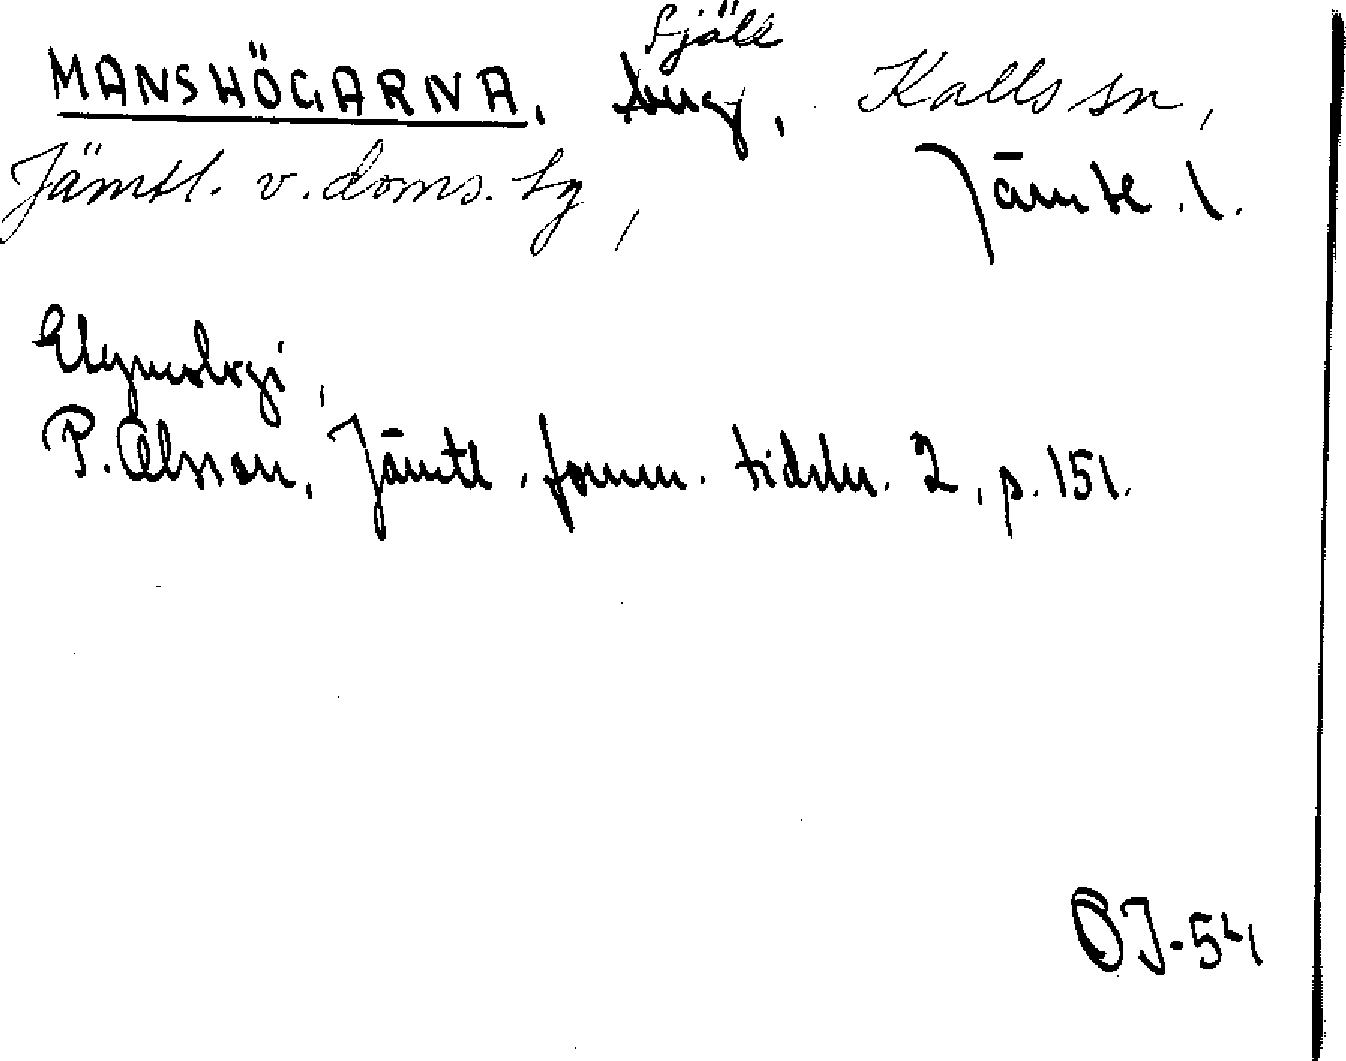 fjäll
MANSHÖGARNA, berg, Kalls sn,
Jämtl. v. doms. tg, Jämtl. l.
Etymologi,
P. Olsson, Jämtl. fornm. tidskr. 2, p. 151.
ÖJ-54